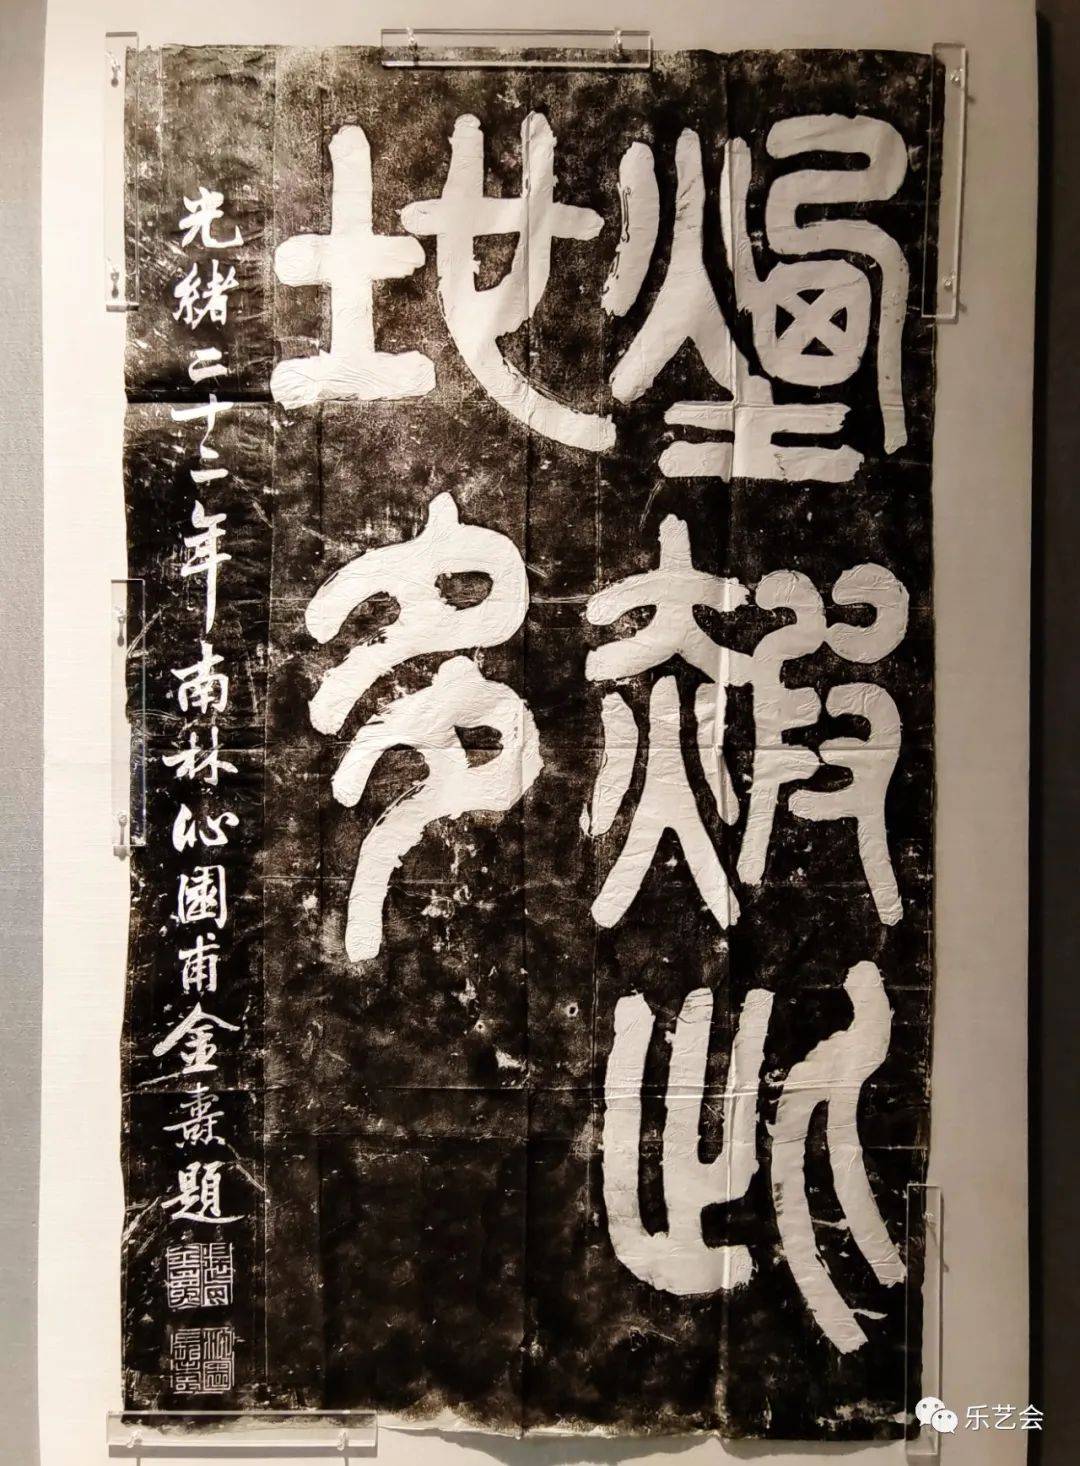 煙赮此
地多
光緒二十二年南林沁園甫金燾題
乐艺会